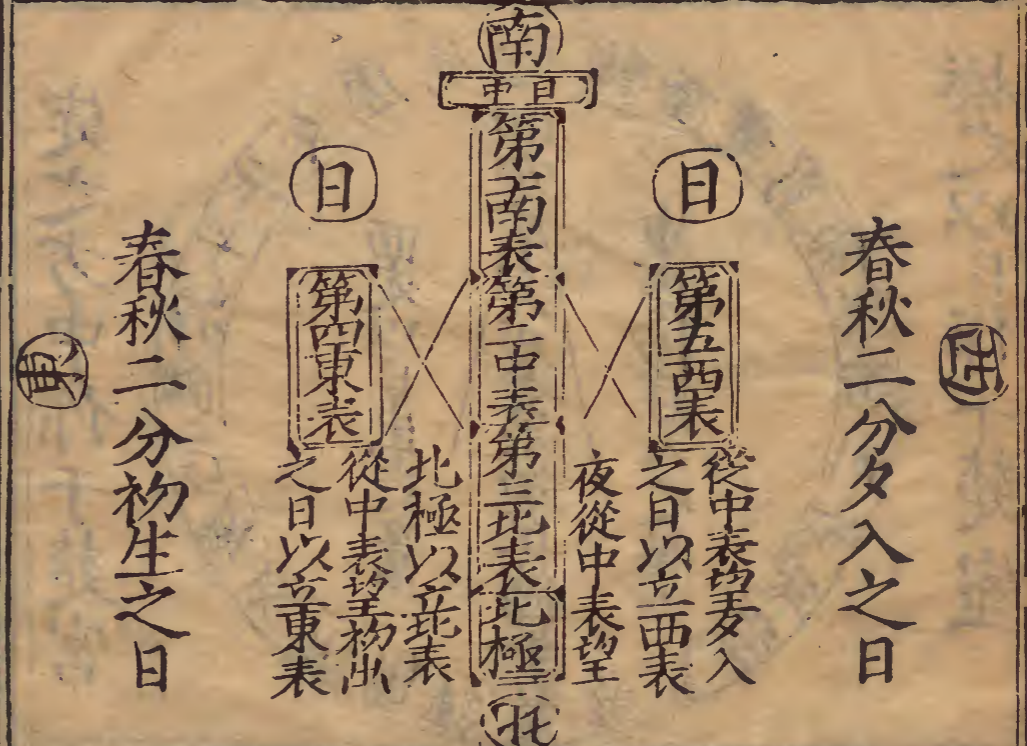 南
日中
西
日
日
東
春秋二分夕入之日
第五西表
從中表望夕入
之日以立西表
夜從中表望
第一南表第二中表第三北表北極
北極以立北表
第四東表
從中表望初出
之日以立東表
春秋二分初生之日
北